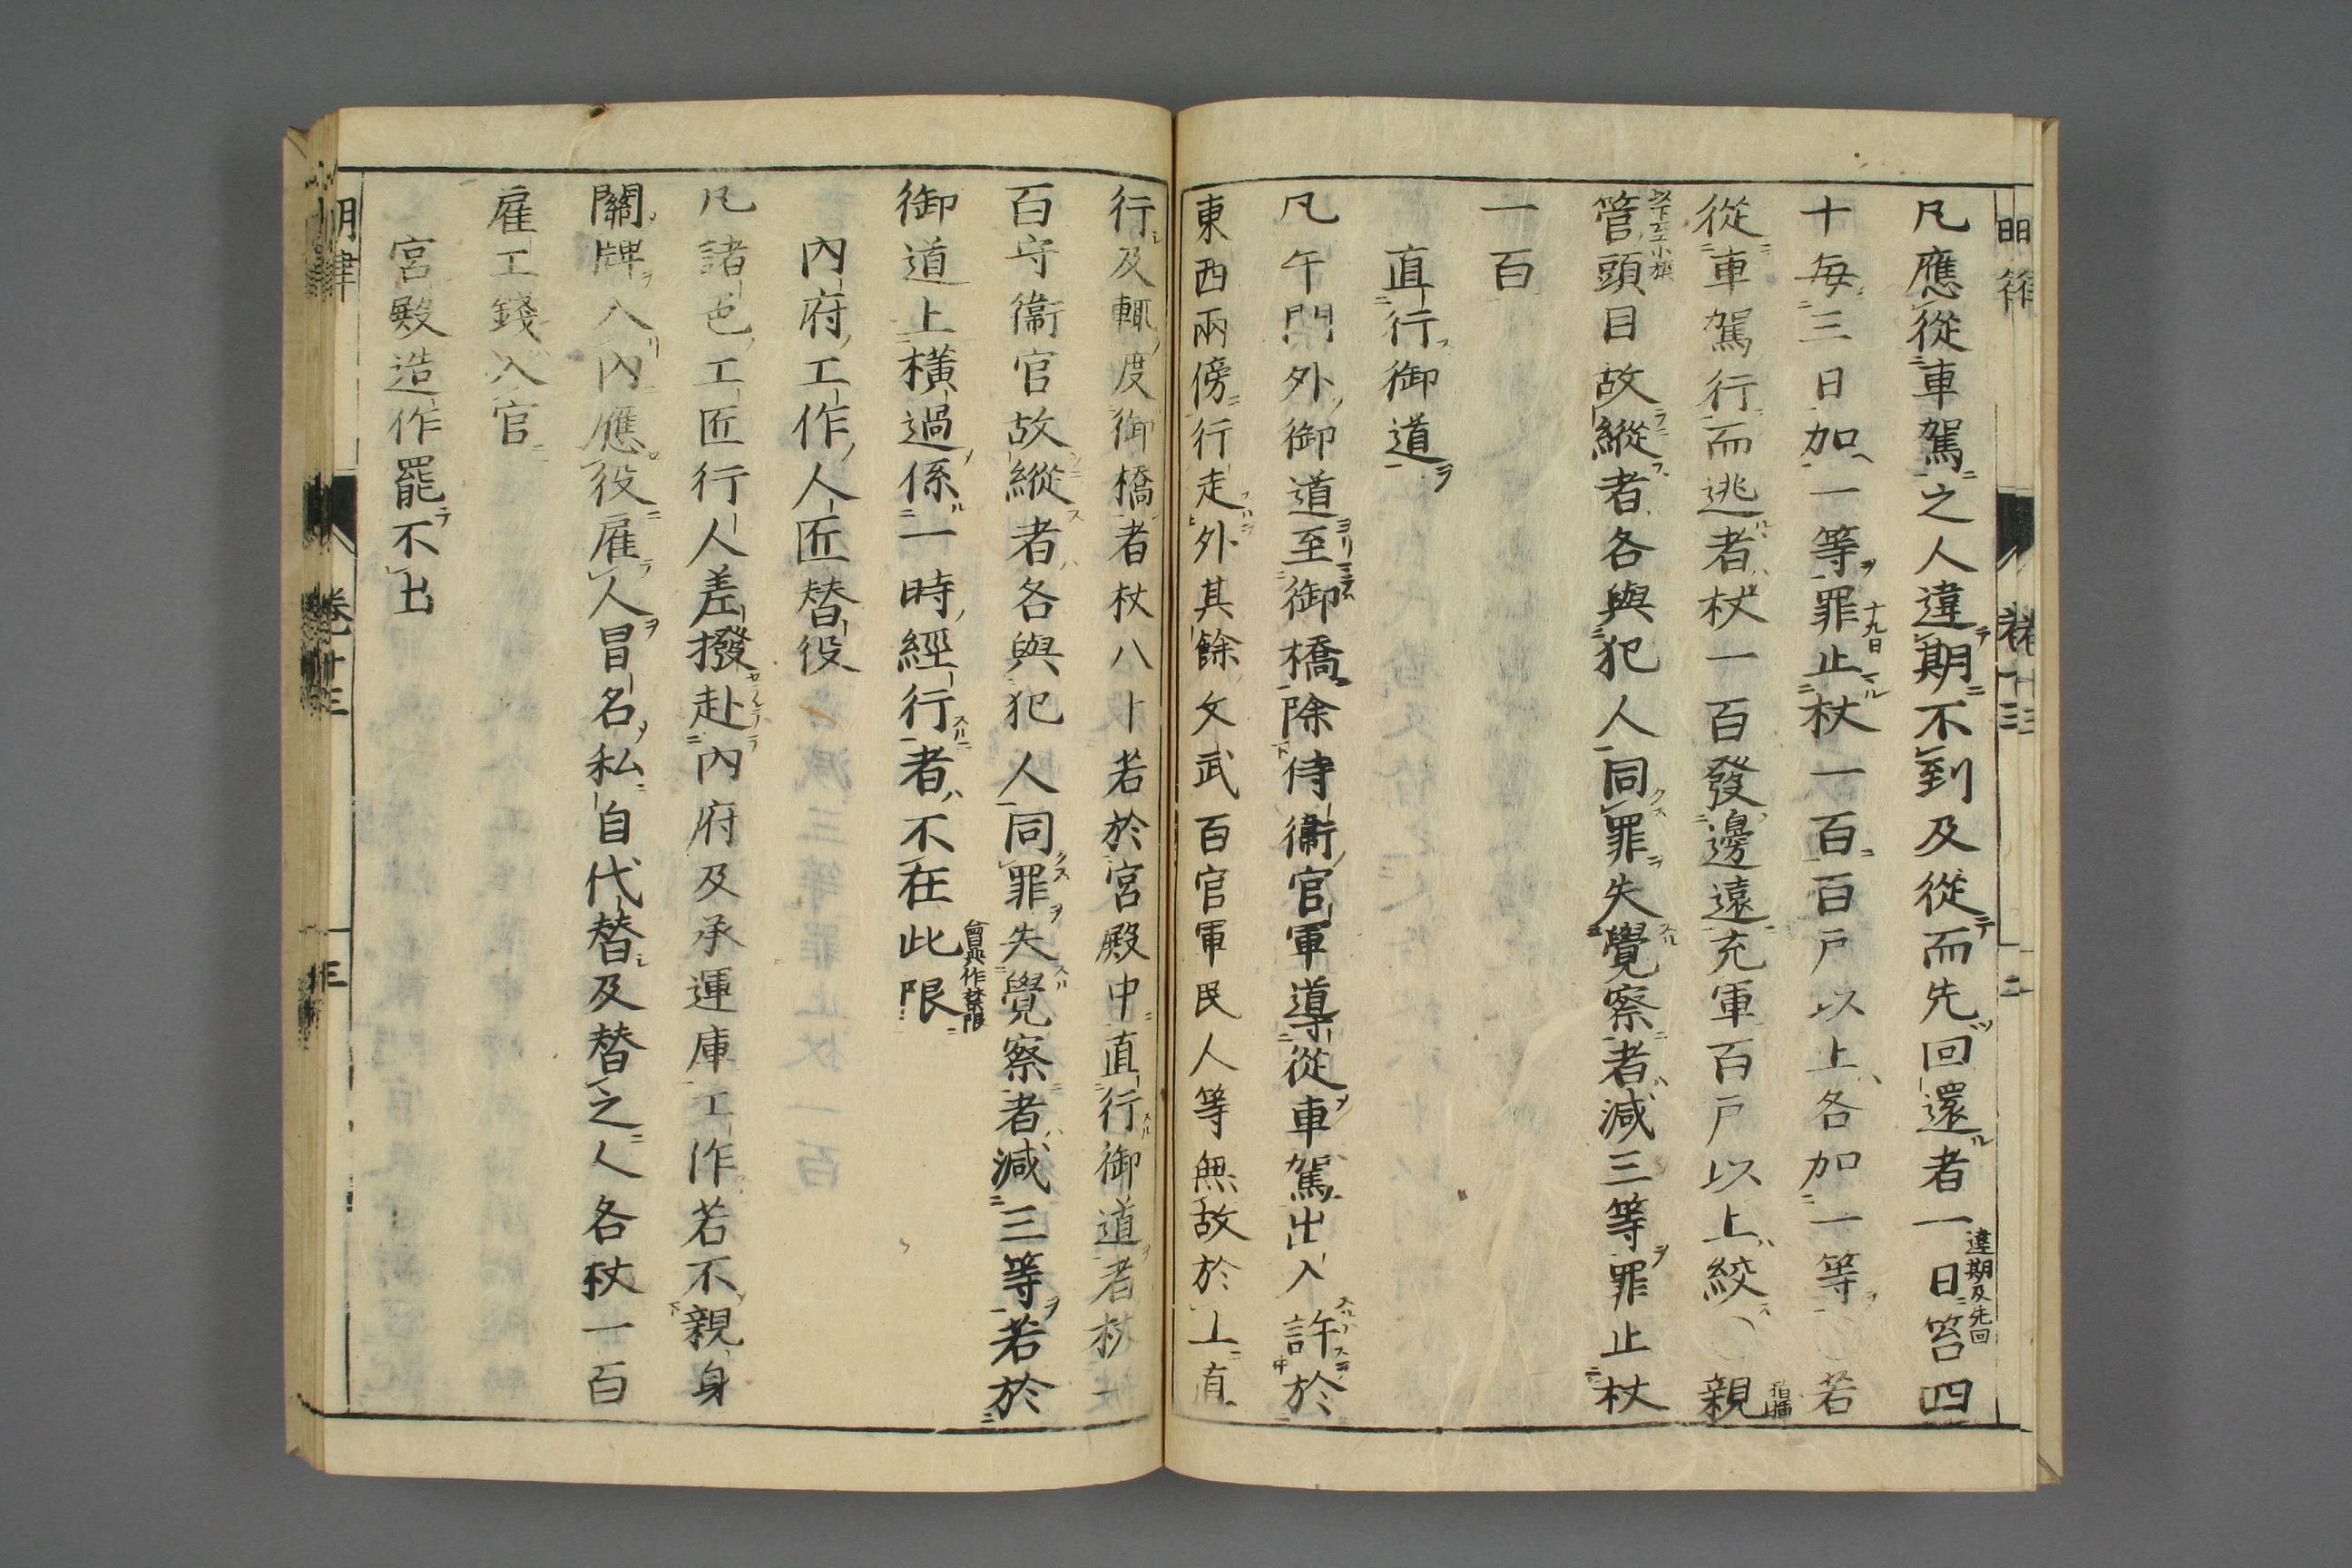 凡應從車駕之人違期不到及從而先回還者一日笞四
違期及先回
十毎三日加一等罪止杖一百百戸以上各加一等〇若
十九日
從車駕行而逃者杖一百發邊遠充軍百戸以上絞〇親
指揮
以下至小旗
管頭目故縱者各與犯人同罪失覺察者減三等罪止杖
一百
直行御道
凡午門外御道至御橋除侍衞官軍導從車駕出入許於
東西兩傍行走外其餘文武百官軍民人等無故於上直
行及輒度御橋者杖八十若於宮殿中直行御道者杖一
百守衞官故縱者各與犯人同罪失覺察者減三等若於
御道上横過係一時經行者不在此限
會典作禁限
內府工作人匠替役
凡諸色工匠行人差撥赴內府及承運庫工作若不親身
關牌入內應役雇人冒名私自代替及替之人各杖一百
雇工錢入官
宮殿造作罷不出
明律
卷十三